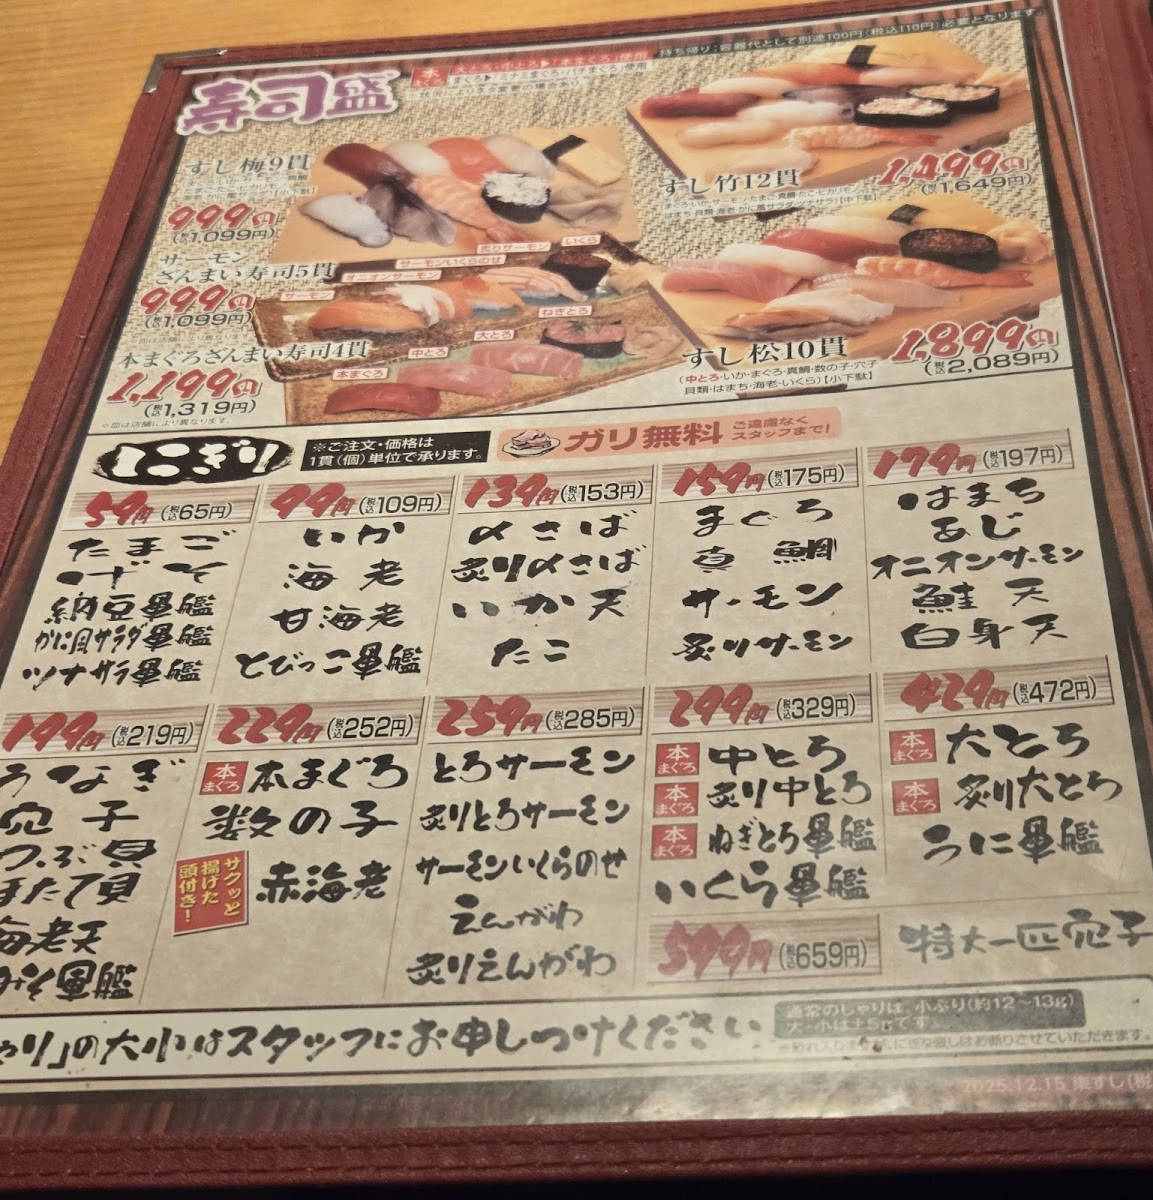 持ち帰り:容器代として別途100円(税込110円)必要となります。
寿司盛
本まぐろ
大とろ・中とろ▶「本まぐろ」使用
まぐろ▶「ミナミまぐろ・バチまぐろ」使用
すし梅9貫
999円
(税込1,099円)
すし竹12貫
1,499円
(税込1,649円)
まぐろ・いか・サーモン・たまご・真鯛・たこ・ヒカリモノ
はまち・貝類・海老・かに風サラダ・ツナサラダ【中下駄】
サーモン
ざんまい寿司5貫
999円
(税込1,099円)
炙りサーモン
いくら
サーモンいくらのせ
オニオンサーモン
サーモン
本まぐろざんまい寿司4貫
1,199円
(税込1,319円)
※皿は店舗により異なります。
ねぎとろ
大とろ
中とろ
本まぐろ
すし松10貫
1,899円
(税込2,089円)
(中とろ・いか・まぐろ・真鯛・数の子・穴子
貝類・はまち・海老・いくら)【小下駄】
にぎり
※ご注文・価格は
1貫(個)単位で承ります。
ガリ無料
ご遠慮なく
スタッフまで!
59円(税込65円)
たまご
げそ
納豆軍艦
かに風サラダ軍艦
ツナサラダ軍艦
99円(税込109円)
いか
海老
甘海老
とびっこ軍艦
139円(税込153円)
〆さば
炙り〆さば
いか天
たこ
159円(税込175円)
まぐろ
真鯛
サーモン
炙りサーモン
179円(税込197円)
はまち
あじ
オニオンサーモン
鮭天
白身天
199円(税込219円)
うなぎ
穴子
つぶ貝
ほたて貝
海老天
みそ軍艦
229円(税込252円)
本まぐろ 本まぐろ
数の子
サクッと
揚げた
頭付き!
赤海老
259円(税込285円)
とろサーモン
炙りとろサーモン
サーモンいくらのせ
えんがわ
炙りえんがわ
299円(税込329円)
本まぐろ 中とろ
本まぐろ 炙り中とろ
本まぐろ ねぎとろ軍艦
いくら軍艦
429円(税込472円)
本まぐろ 大とろ
本まぐろ 炙り大とろ
うに軍艦
599円(税込659円)
特大一匹穴子
ゃり」の大小はスタッフにお申しつけください
通常のしゃりは、小ぶり(約12〜13g)
大・小は±5gです。
2025.12.15